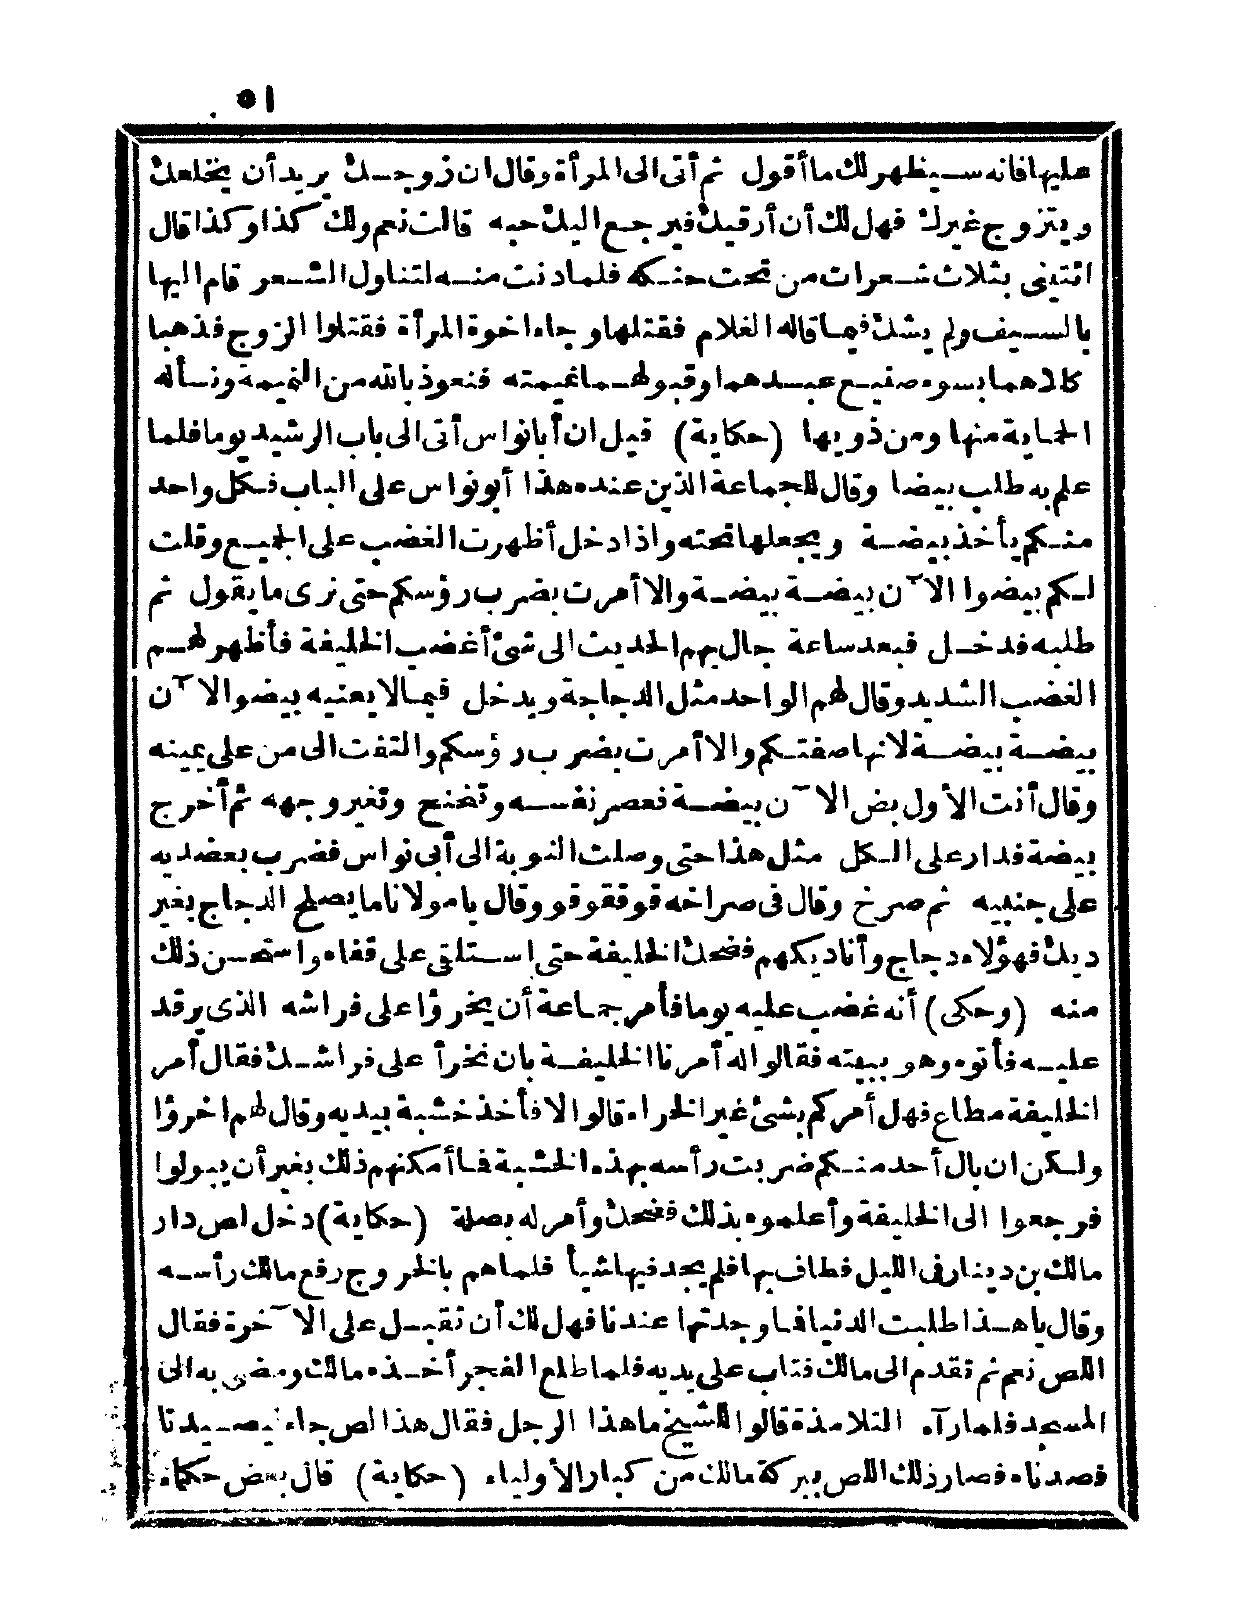 ٥١
عليها فانه سيظهر لك ما أقول ثم أتى الى المرأة وقال ان زوجك يريد أن يخلعك
ويتزوج غيرك فهل لك أن أرقيك فيرجع اليك حبه قالت نعم ولك كذا وكذا قال
ائتينى بثلاث شعرات من تحت حنكه فلما دنت منه لتناول الشعر قام اليها
بالسيف ولم يشك فيما قاله الغلام فقتلها وجاء اخوة المرأة فقتلوا الزوج فذهبا
كلاهما بسوء صنيع عبدهما وقبولهما نميمته فنعوذ بالله من النميمة ونسأله
الحماية منها ومن ذويها (حكاية) قيل ان أبا نواس أتى الى باب الرشيد يوما فلما
علم به طلب بيضا وقال للجماعة الذين عنده هذا أبو نواس على الباب فكل واحد
منكم يأخذ بيضة ويجعلها تحته واذا دخل أظهرت الغضب على الجميع وقلت
لكم بيضوا الآن بيضة بيضة والا أمرت بضرب رؤسكم حتى نرى ما يقول ثم
طلبه فدخل فبعد ساعة جال بهم الحديث الى شئ أغضب الخليفة فأظهر لهم
الغضب الشديد وقال لهم الواحد مثل الدجاجة ويدخل فيما لا يعنيه بيضوا الآن
بيضة بيضة لانها صفتكم والا أمرت بضرب رؤسكم والتفت الى من على يمينه
وقال أنت الأول بض الآن بيضة فعصر نفسه وتخنح وتغير وجهه ثم أخرج
بيضة فدار على الكل مثل هذا حتى وصلت النوبة الى أبى نواس فضرب بعضديه
على جنبيه ثم صرخ وقال فى صراخه قوققوقو وقال يا مولانا ما يصلح الدجاج بغير
ديك فهؤلاء دجاج وأنا ديكهم فضحك الخليفة حتى استلقى على قفاه واستحسن ذلك
منه (وحكى) أنه غضب عليه يوما فأمر جماعة أن يخرؤا على فراشه الذى يرقد
عليه فأتوه وهو ببيته فقالوا له أمرنا الخليفة بان نخرأ على فراشك فقال أمر
الخليفة مطاع فهل أمركم بشئ غير الخراء قالوا لا فأخذ خشبة بيديه وقال لهم اخرؤا
ولكن ان بال أحد منكم ضربت رأسه بهذه الخشبة فما أمكنهم ذلك بغير أن يبولوا
فرجعوا الى الخليفة وأعلموه بذلك فضحك وأمر له بصلة (حكاية) دخل لص دار
مالك بن دينار فى الليل فطاف بها فلم يجد فيها شيأ فلما هم بالخروج رفع مالك رأسه
وقال يا هذا طلبت الدنيا فما وجدتها عندنا فهل لك أن تقبل على الآخرة فقال
اللص نعم ثم تقدم الى مالك فتاب على يديه فلما طلع الفجر أخذه مالك ومضى به الى
المسجد فلما رآه التلامذة قالوا للشيخ ما هذا الرجل فقال هذا لص جاء يصيدنا
فصدناه فصار ذلك اللص ببركة مالك من كبار الأولياء (حكاية) قال بعض حكماء